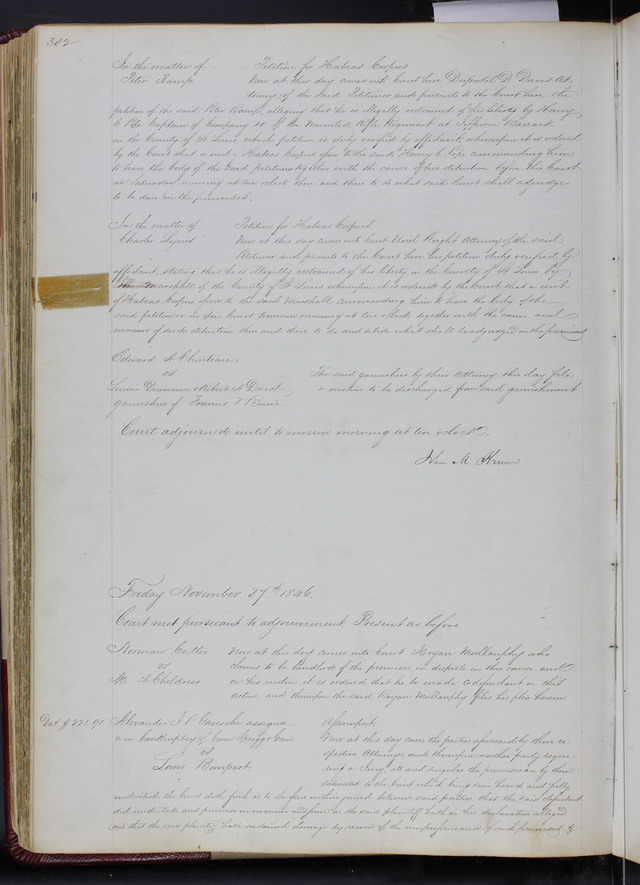 382
In the matter of Petition for Habeas Corpus
Peter Kamp Now at this day comes into Court here D. Davis At
torney of the said Petitioner and presents to the Court here the
petition of the said Peter Kamp, alleging that he is illegally restrained of his liberty by Henry
C Pope Captain of Company of the Mounted Rifle Regiment at Jefferson Barrack
in the County of St Louis which petition is duly verified by affidavit, whereupon it is ordered
by the Court that a writ of Habeas Corpus issue to the said Henry C Pope commanding him
to have the body of the said petitioner together with the cause of his detention before this Court
on Saturday morning at ten oclock then and there to do what said Court shall adjudge
to be done in the premises.
In the matter of Petition for Habeas Corpus
Charles Lyons Now at this day comes into Court Uriel Wright Attorney of the said
Petitioner and presents to the Court here his petition duly verified by
affidavit, stating that he is illegally restrained of his liberty in the County of St Louis by
Marshall of the County of St Louis whereupon it is ordered by the Court that a writ
of Habeas Corpus issue to the said Marshall commanding him to have the body of the
said petitioner in open Court tomorrow morning at ten oclock together with the cause and
manner of such detention then and there to do and abide what shall be adjudged in the premises
Edward A Chouteau
vs The said garnishees by their Attorney this day file
& Robert A a motion to be discharged from said garnishment
garnishees of Francis
Court adjourned until to morrow morning at ten oclock.
John M Krum
Friday November 27th 1846.
Court met pursuant to adjournment Present as before
Norman Cutter Now at this day comes into Court Bryan Mullanphy who
vs claims to be landlord of the premises in dispute in this cause and
M A Childress on his motion it is ordered that he be made codefendant in this
action, and thereupon the said Bryan Mullanphy files his plea herein
$221.91 Alexander J P assignee Assumpsit
in bankruptcy of Now at this day come the parties aforesaid by their re-
vs spective Attorneys and thereupon neither party requir-
Louis Bompart ing a Jury, all and singular the premises are by them
submitted to the Court which being seen heard and fully
understood, the Court doth find as to the issue within joined between said parties that the said defendant
did undertake and promise in manner and form as the said plaintiff hath in his declaration alleged
and that the said plaintiff hath sustained damage by reason of the nonperformance of such promises &